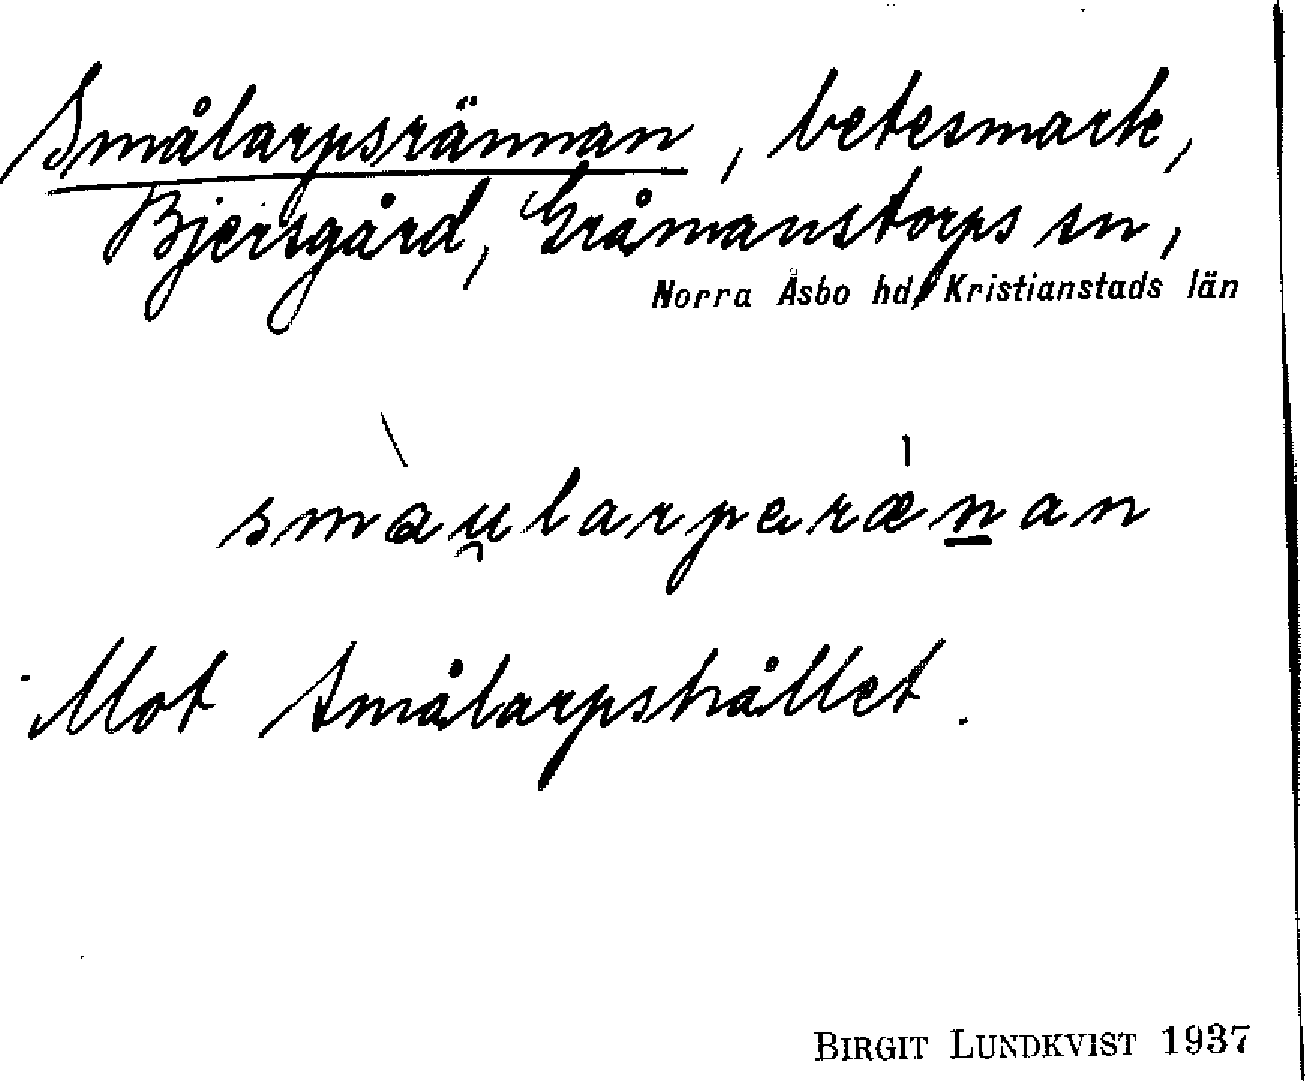 Smålarpsrännan, betesmark,
Bjersgård, Gråmanstorps sn,
Norra Åsbo hd, Kristianstads län
smàu̯larparæ̀n̲an
Mot Smålarpshållet.
BIRGIT LUNDKVIST 1937